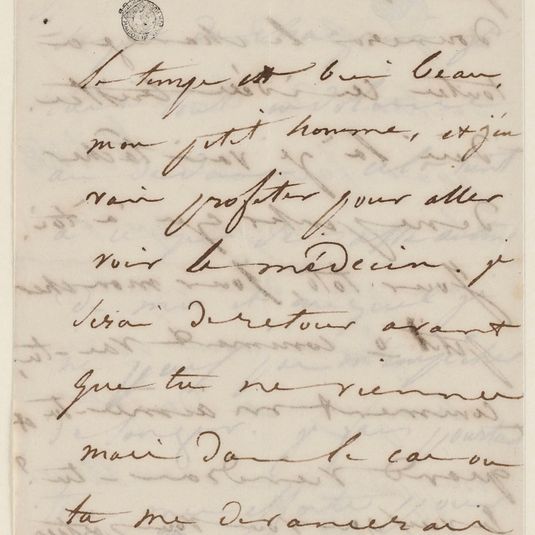 le temps est bien beau,
mon petit homme, et j'en
vais profiter pour aller
voir le médecin. je
serai de retour avant
que tu ne viennes
mais dans le cas où
tu me devancerais